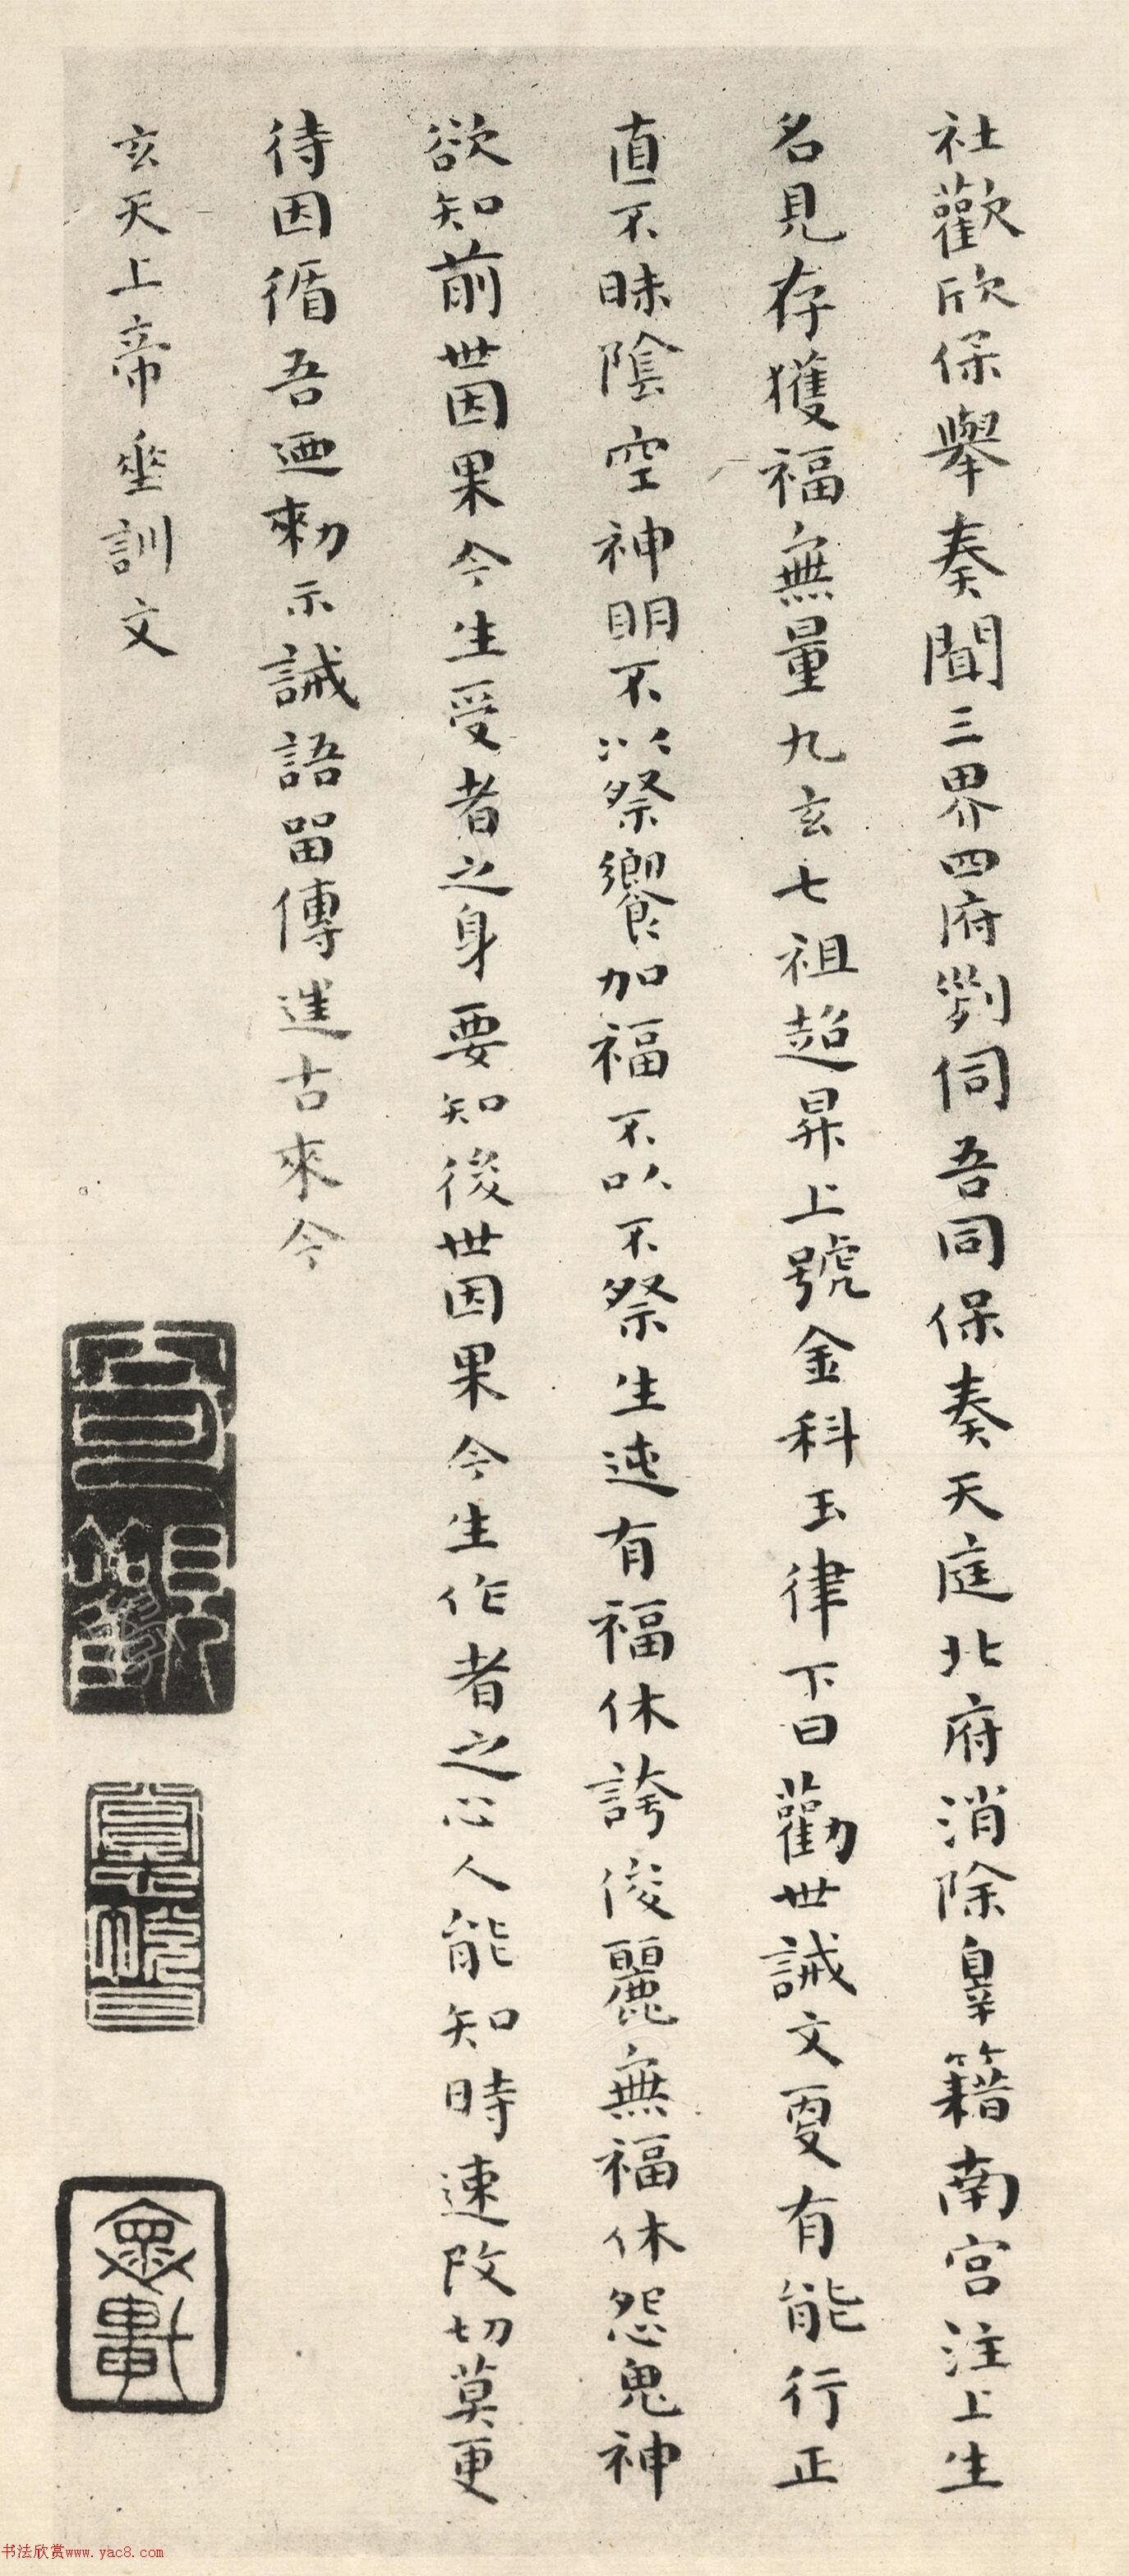 社歡欣保舉奏聞三界四府劄同吾同保奏天庭北府消除辠籍南宮注上生
名見存獲福無量九玄七祖超昇上號金科玉律下曰勸世誡文更有能行正
直不昧陰空神明不以祭饗加福不以不祭生迍有福休誇俊麗無福休怨鬼神
欲知前世因果今生受者之身要知後世因果今生作者之心人能知時速改切莫更
待因循吾迺勑示誡語留傳進古來今
玄天上帝垂訓文
书法欣赏www.yac8.com